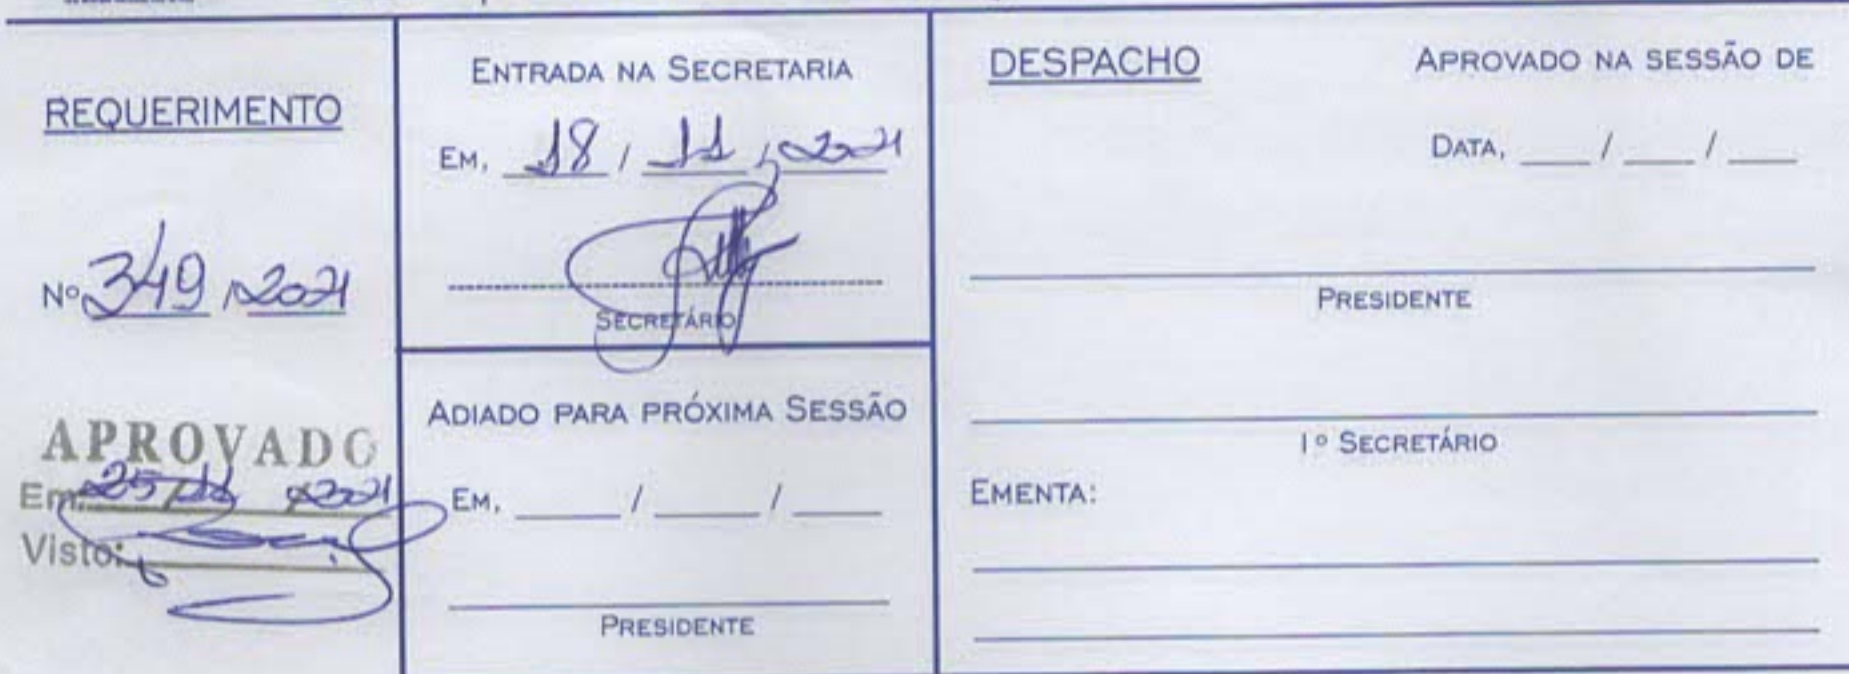 REQUERIMENTO
Nº 349 / 2021
APROVADO
Em: 25 / 11 / 2021
Visto:
ENTRADA NA SECRETARIA
EM, 18 / 11 / 2021
SECRETÁRIO
ADIADO PARA PRÓXIMA SESSÃO
EM, ____ / ____ / ____
PRESIDENTE
DESPACHO
APROVADO NA SESSÃO DE
DATA, ___ / ___ / ___
PRESIDENTE
1º SECRETÁRIO
EMENTA: